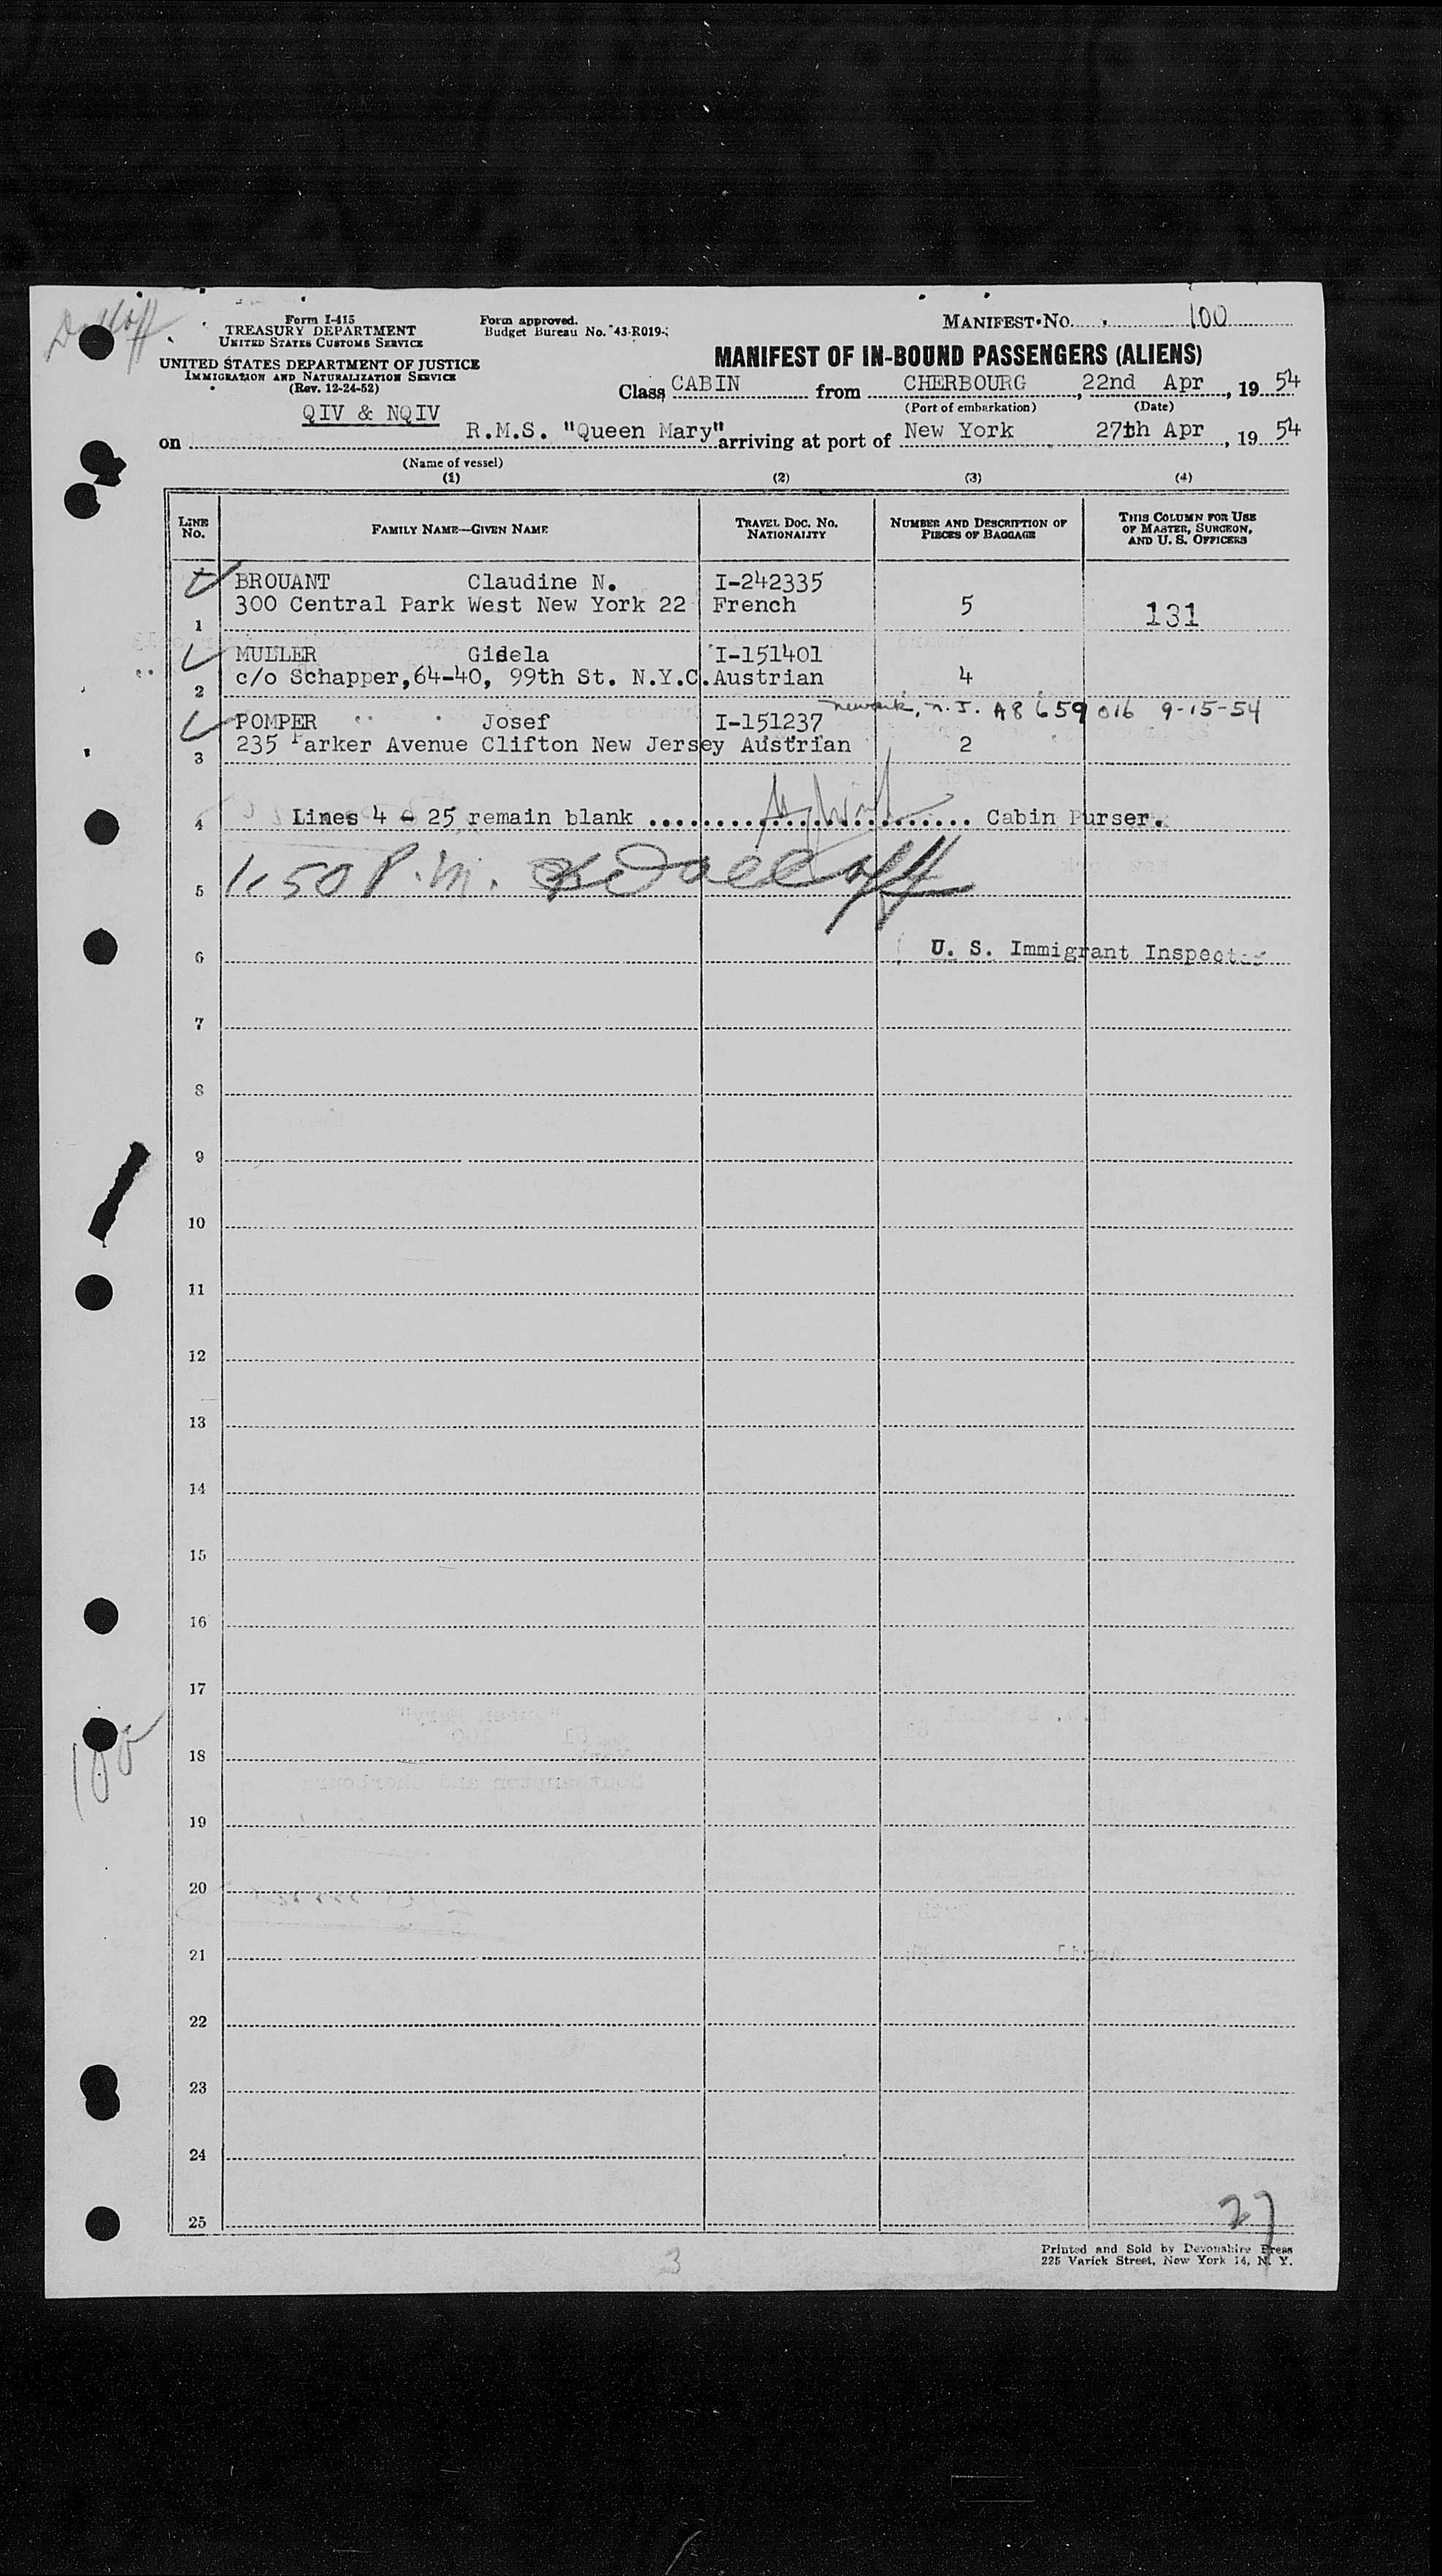 Form I-415
TREASURY DEPARTMENT
UNITED STATES CUSTOMS SERVICE
UNITED STATES DEPARTMENT OF JUSTICE
IMMIGRATION AND NATURALIZATION SERVICE
(Rev. 12-24-52)
Form approved.
Budget Bureau No. 43-R019-
MANIFEST No. 100
MANIFEST OF IN-BOUND PASSENGERS (ALIENS)
Class CABIN from CHERBOURG, 22nd Apr, 19 54
(Port of embarkation) (Date)
QIV & NQIV
on R.M.S. "Queen Mary" arriving at port of New York 27th Apr, 19 54
(Name of vessel)
(1) (2) (3) (4)
LINE No. FAMILY NAME—GIVEN NAME TRAVEL DOC. NO. NATIONALITY NUMBER AND DESCRIPTION OF PIECES OF BAGGAGE THIS COLUMN FOR USE OF MASTER, SURGEON, AND U. S. OFFICERS
BROUANT Claudine N. I-242335
1 300 Central Park West New York 22 French 5 131
MULLER Gisela I-151401
2 c/o Schapper,64-40, 99th St. N.Y.C. Austrian 4
Newark, N.J. A8 659 016 9-15-54
POMPER Josef I-151237
3 235 Parker Avenue Clifton New Jersey Austrian 2
4 Lines 4 - 25 remain blank .......................... Cabin Purser.
5 1.50 P.M.
6 U. S. Immigrant Inspector
7
8
9
10
11
12
13
14
15
16
17
100
18
19
20
21
22
23
24
25
27
3
Printed and Sold by Devonshire Press
225 Varick Street, New York 14, N. Y.